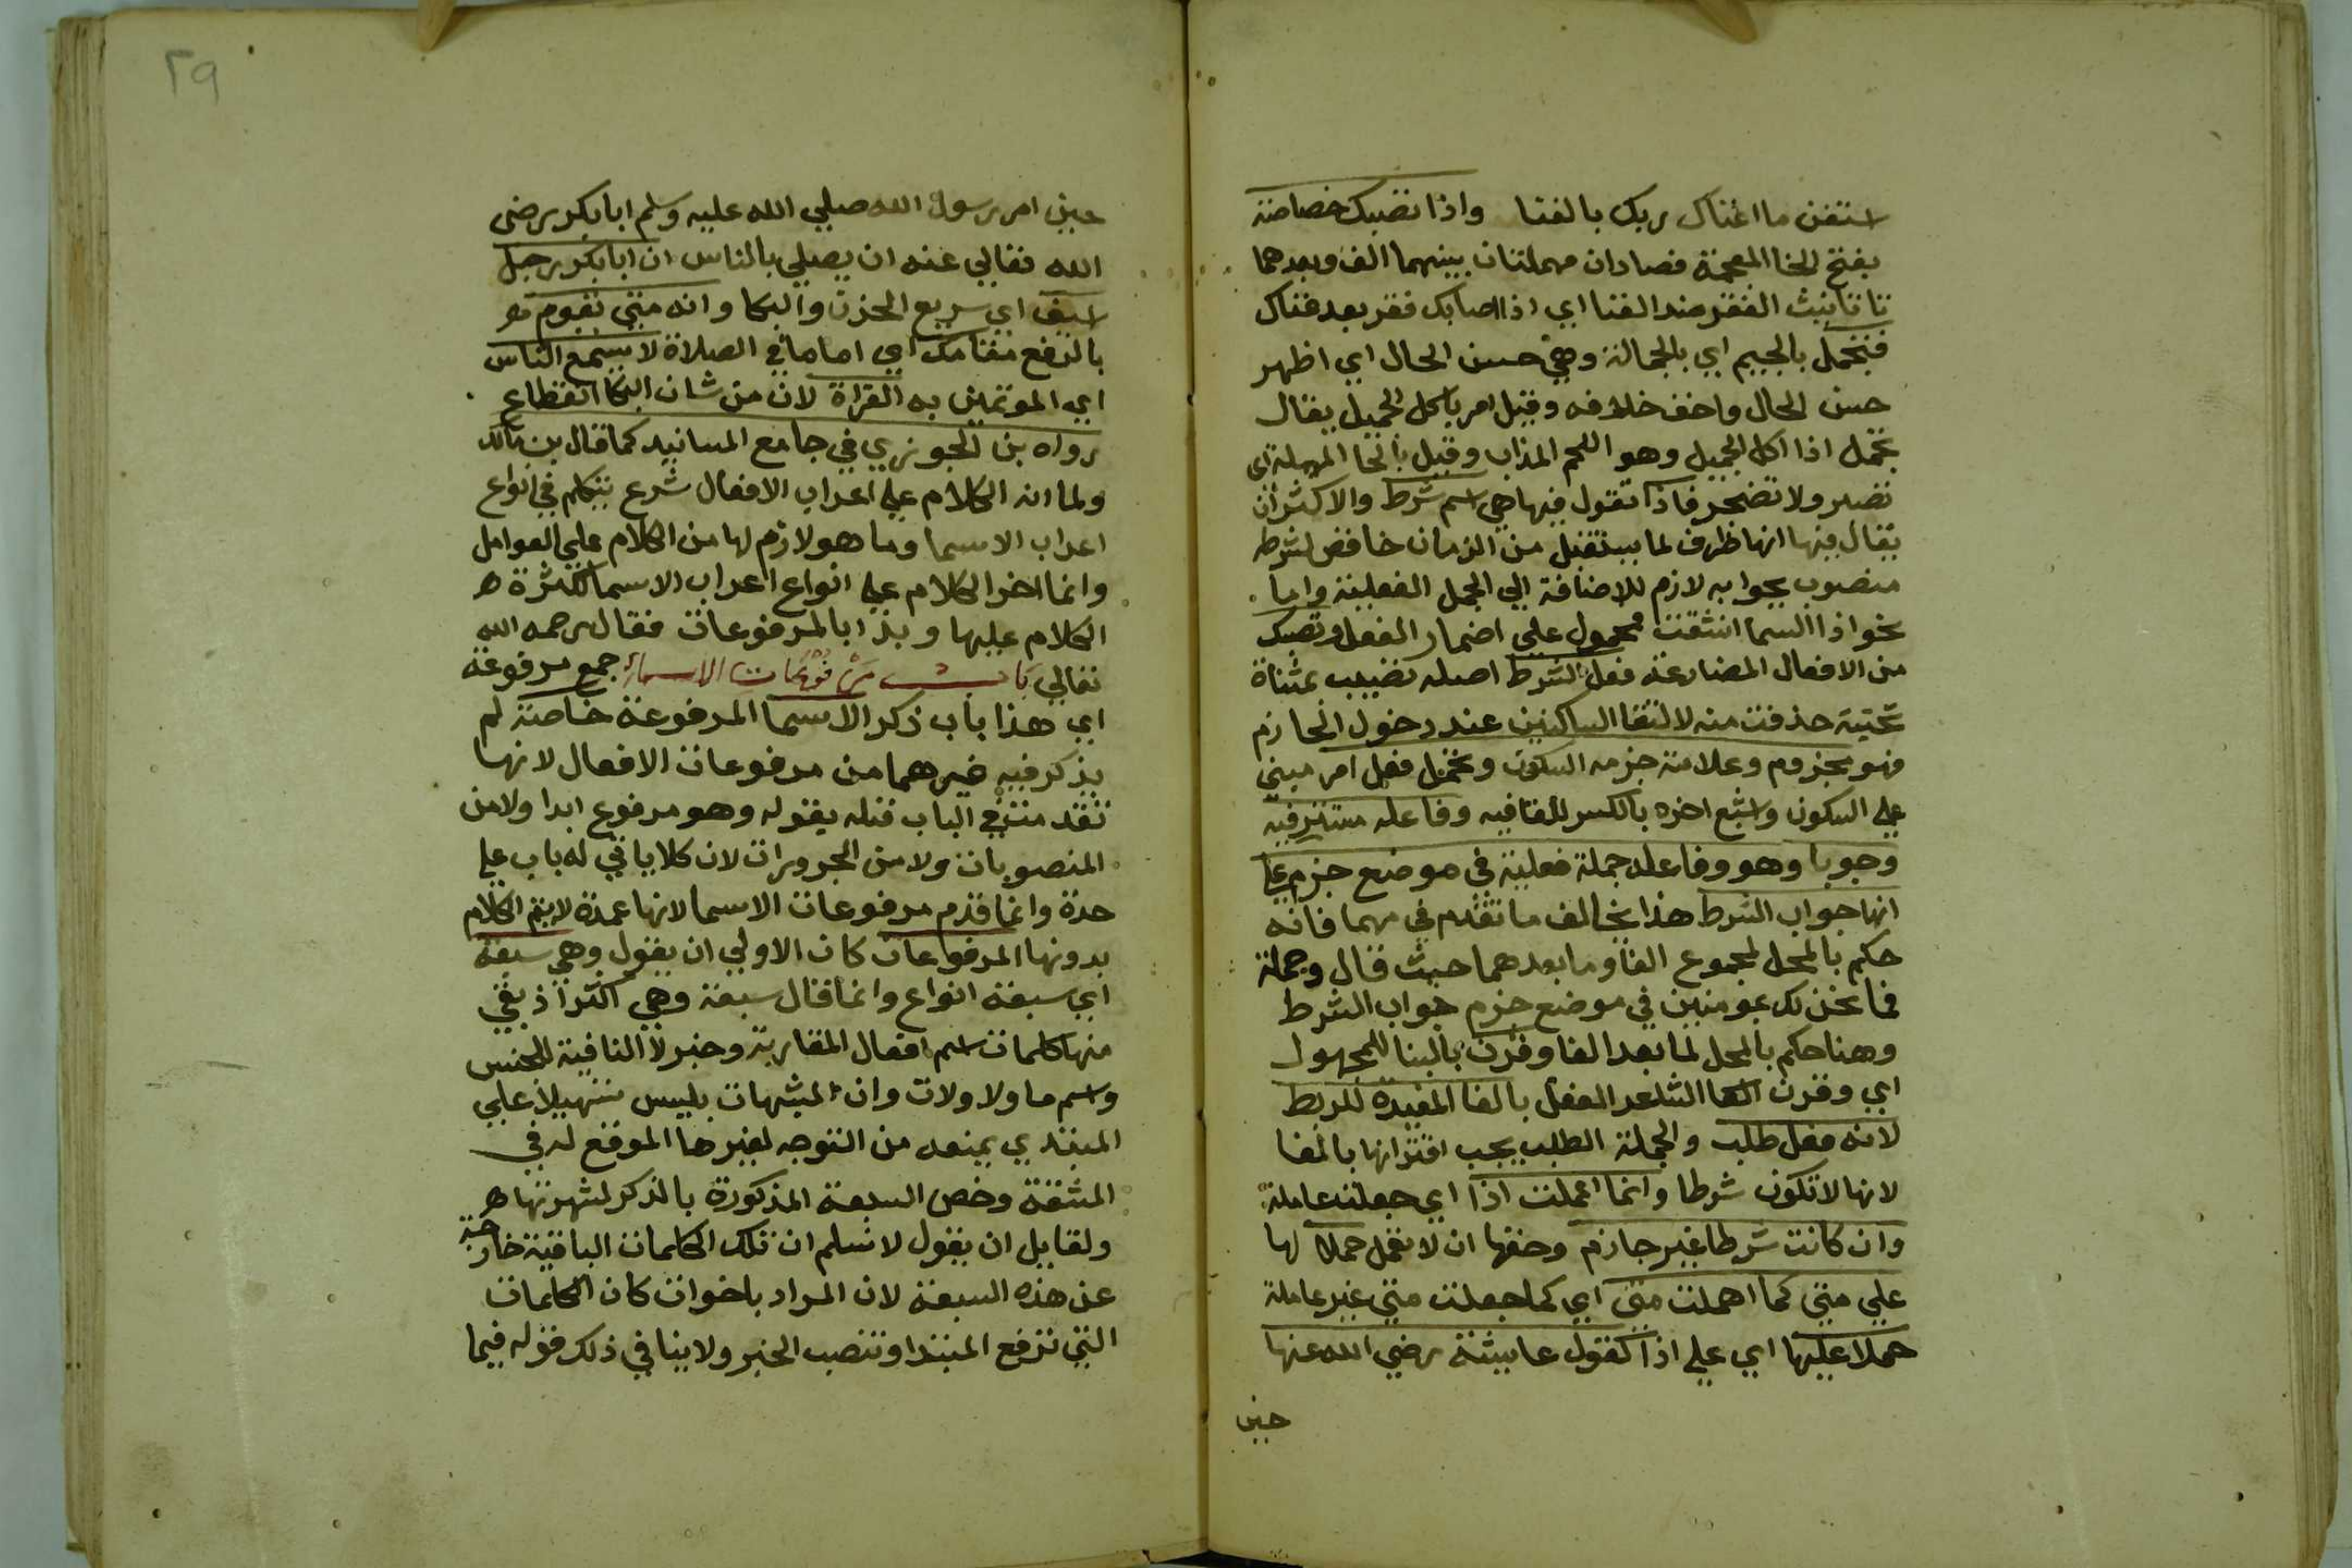 استغن ما اغناك ربك بالغنا واذا تصبك خصاصة
بفتح الخا المعجمة فصادان مهملتان بينهما الف وبعدهما
تا تانيث الفقر ضد الغنا اي اذا اصابك فقر بعد غناك
فتجمل بالجيم اي بالجمالة وهي حسن الحال اي اظهر
حسن الحال واخف خلافه وقيل امر باكل الجميل يقال
تجمل اذا اكل الجميل وهو اللحم المذاب وقيل بالحا المهملة اي
تصبر ولا تضجر فاذا تقول فيها هي اسم شرط والاكثر ان
يقال فيها انها ظرف لما يستقبل من الزمان خافض لشرطه
منصوب بجوابه لازم للاضافة الي الجمل الفعلية واما
نحو اذا السما انشقت محمول علي اضمار الفعل وتصبك
من الافعال المضارعة فعل الشرط اصله تصيبب بمثناة
تحتية حذفت منه لالتقا الساكنين عند دخول الجازم
فهو مجزوم وعلامة جزمه السكون وتجمل فعل امر مبني
علي السكون واشبع اخره بالكسر للقافيه وفاعله مستتر فيه
وجوبا وهو وفاعله جملة فعلية في موضع جزم علي
انها جواب الشرط هذا يخالف ما تقدم في مهما فانه
حكم بالمحل لمجموع الفا وما بعدهما حيث قال وجملة
فما نحن لك بمومنين في موضع جزم جواب الشرط
وهنا حكم بالمحل لما بعد الفا وقرن بالبنا للمجهول
اي وقرن الشاعر الفعل بالفا المفيده للربط
لانه فعل طلب والجملة الطلب يجب اقترانها بالفا
لانها لا تكون شرطا وانما اعملت اذا اي جعلت عاملة
وان كانت شرطا غير جازم وحقها ان لا تعمل حملا لها
علي متي كما اهملت متي اي كما جعلت متي غير عاملة
حملا عليها اي علي اذا كقول عايشة رضي الله عنها
حين
٢٩
حين امر رسول الله صلي الله عليه وسلم ابا بكر رضي
الله تعالي عنه ان يصلي بالناس ان ابا بكر رجل
اسيف اي سريع الحزن والبكا وانه متي تقوم هو
بالرفع مقامك اي اماما في الصلاة لا يسمع الناس
اي الموتمين به القراة لان من شان البكا انقطاع
رواه بن الجوزي في جامع المسانيد كما قال بن مالك
ولما انه الكلام علي اعراب الافعال شرع يتكلم في انواع
اعراب الاسما وما هو لازم لها من الكلام علي العوامل
وانما اخر الكلام علي انواع اعراب الاسما لكثرة ه
الكلام عليها وبدا بالمرفوعات فقال رحمه الله
تعالي باب مرفوعات الاسماء جمع مرفوعة
اي هذا باب ذكر الاسما المرفوعة خاصة لم
يذكر فيه غيرهما من مرفوعات الافعال لانها
تقدمت في الباب قبله بقوله وهو مرفوع ابدا ولا من
المنصوبات ولا من المجرورات لان كلا ياتي له باب علي
حدة وانما قدم مرفوعات الاسما لانها عمدة لا يتم الكلام
بدونها المرفوعات كان الاولي ان يقول وهي سبعة
اي سبعة انواع وانما قال سبعة وهي اكثر اذ بقي
منها كلمات اسم افعال المقاربة وخبر لا النافية للجنس
واسم ما ولا ولات وان المشبهات بليس تسهيلا علي
المبتدي يمنعه من التوجه لغيرها الموقع له في
المشقة وخص السبعة المذكورة بالذكر لشهرتها ه
ولقايل ان يقول لا نسلم ان تلك الكلمات الباقية خارجة
عن هذه السبعة لان المراد باخوات كان الكلمات
التي ترفع المبتدا وتنصب الخبر ولا ينافي ذلك قوله فيما